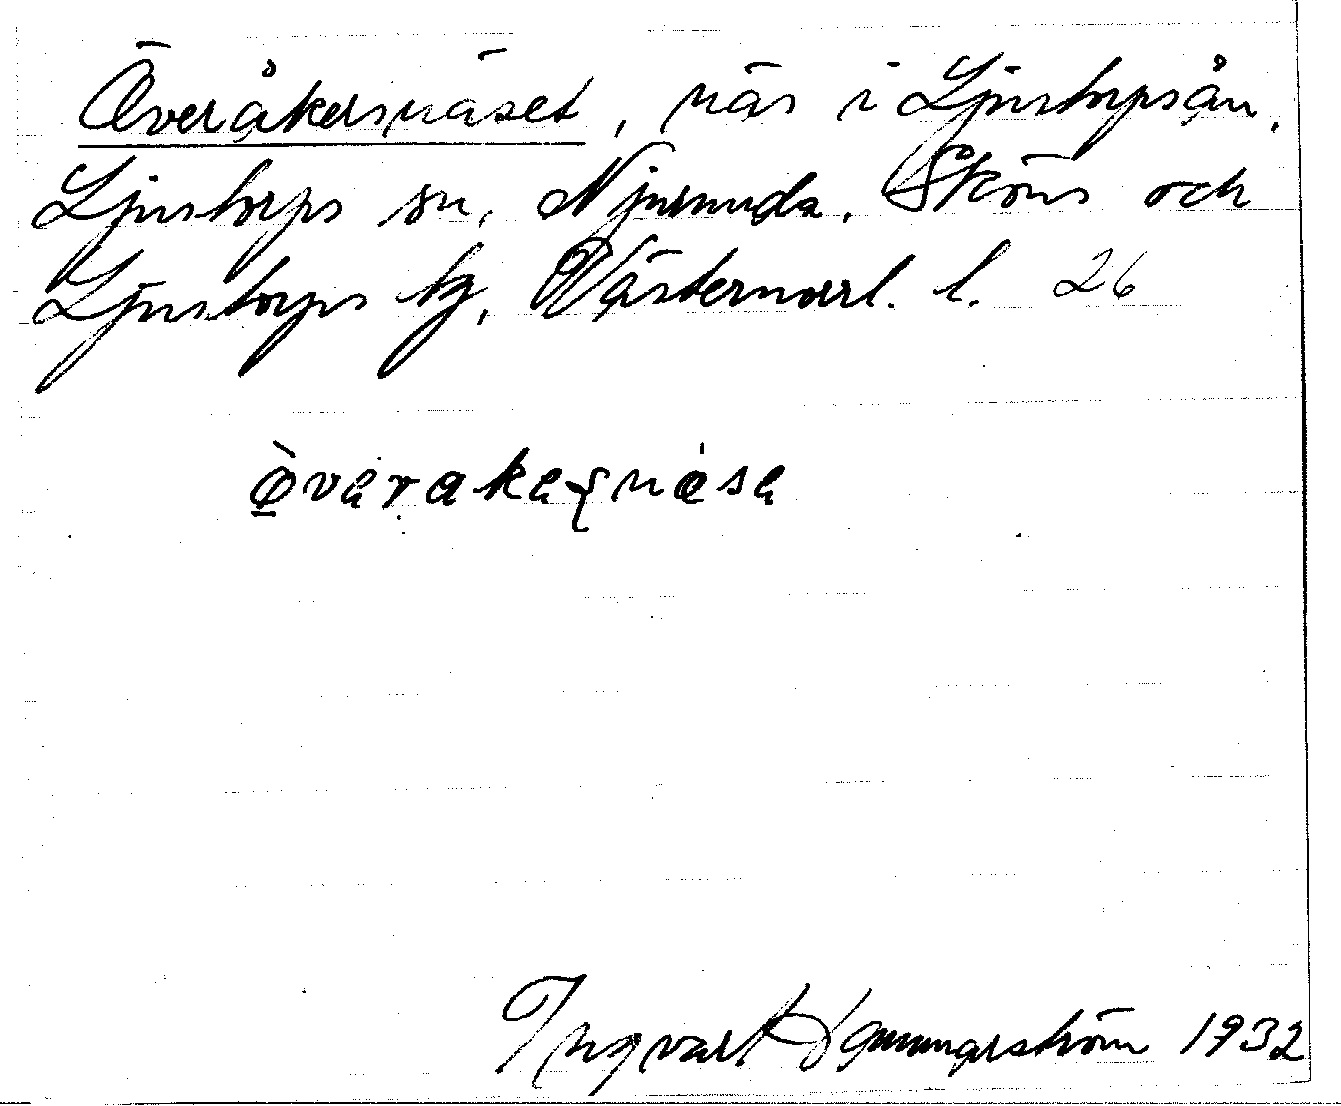 Överåkersnäset, näs i Ljustorpsån,
Ljustorps sn, Njurunda, Sköns och
Ljustorps tg, Västernorrl. l. 26
Ingvart Hammarström 1932